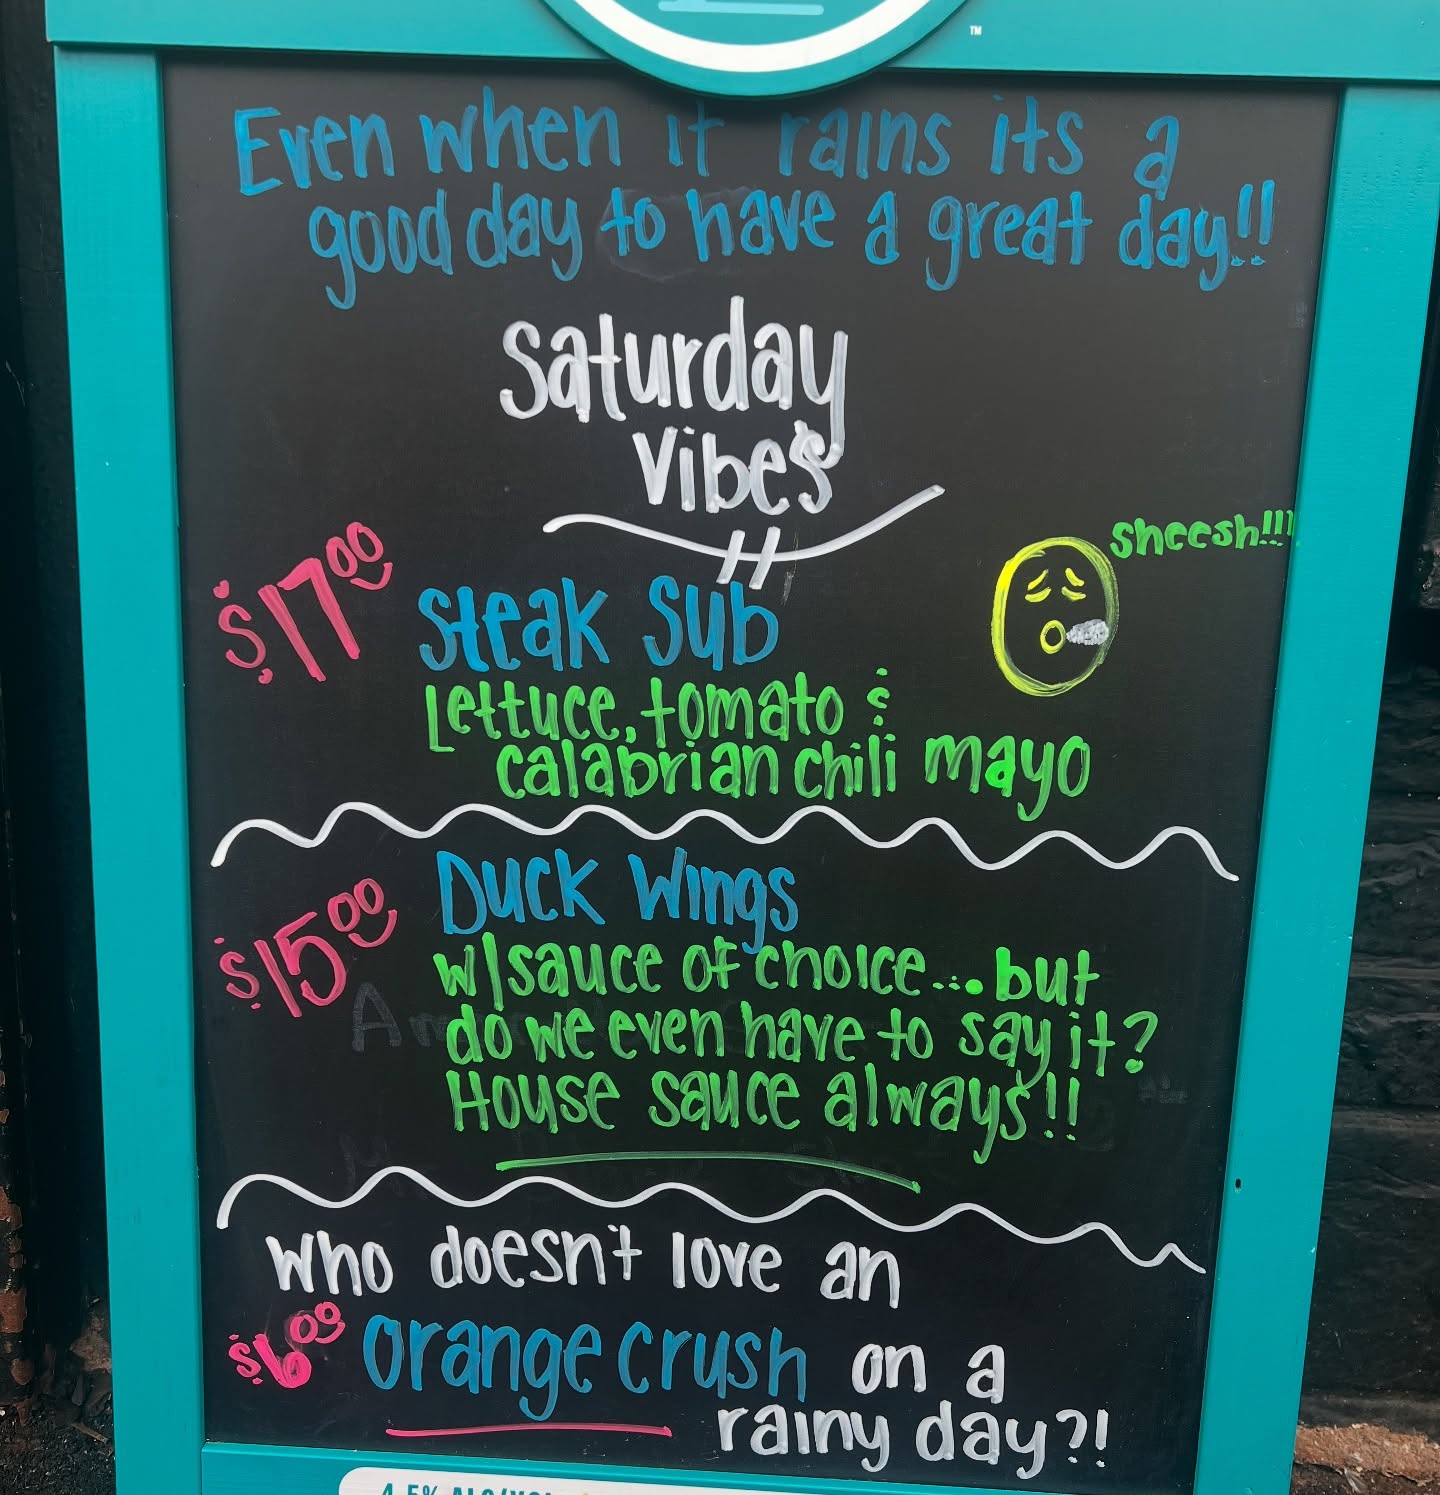 TM
Even when it rains its a
good day to have a great day!!
Saturday
Vibes
sheesh!!!
$17.00
Steak Sub
Lettuce, tomato &
calabrian chili mayo
$15.00
Duck Wings
w/sauce of choice....but
do we even have to say it?
House sauce always!!
Who doesn't love an
$6.00 orange crush on a
rainy day?!